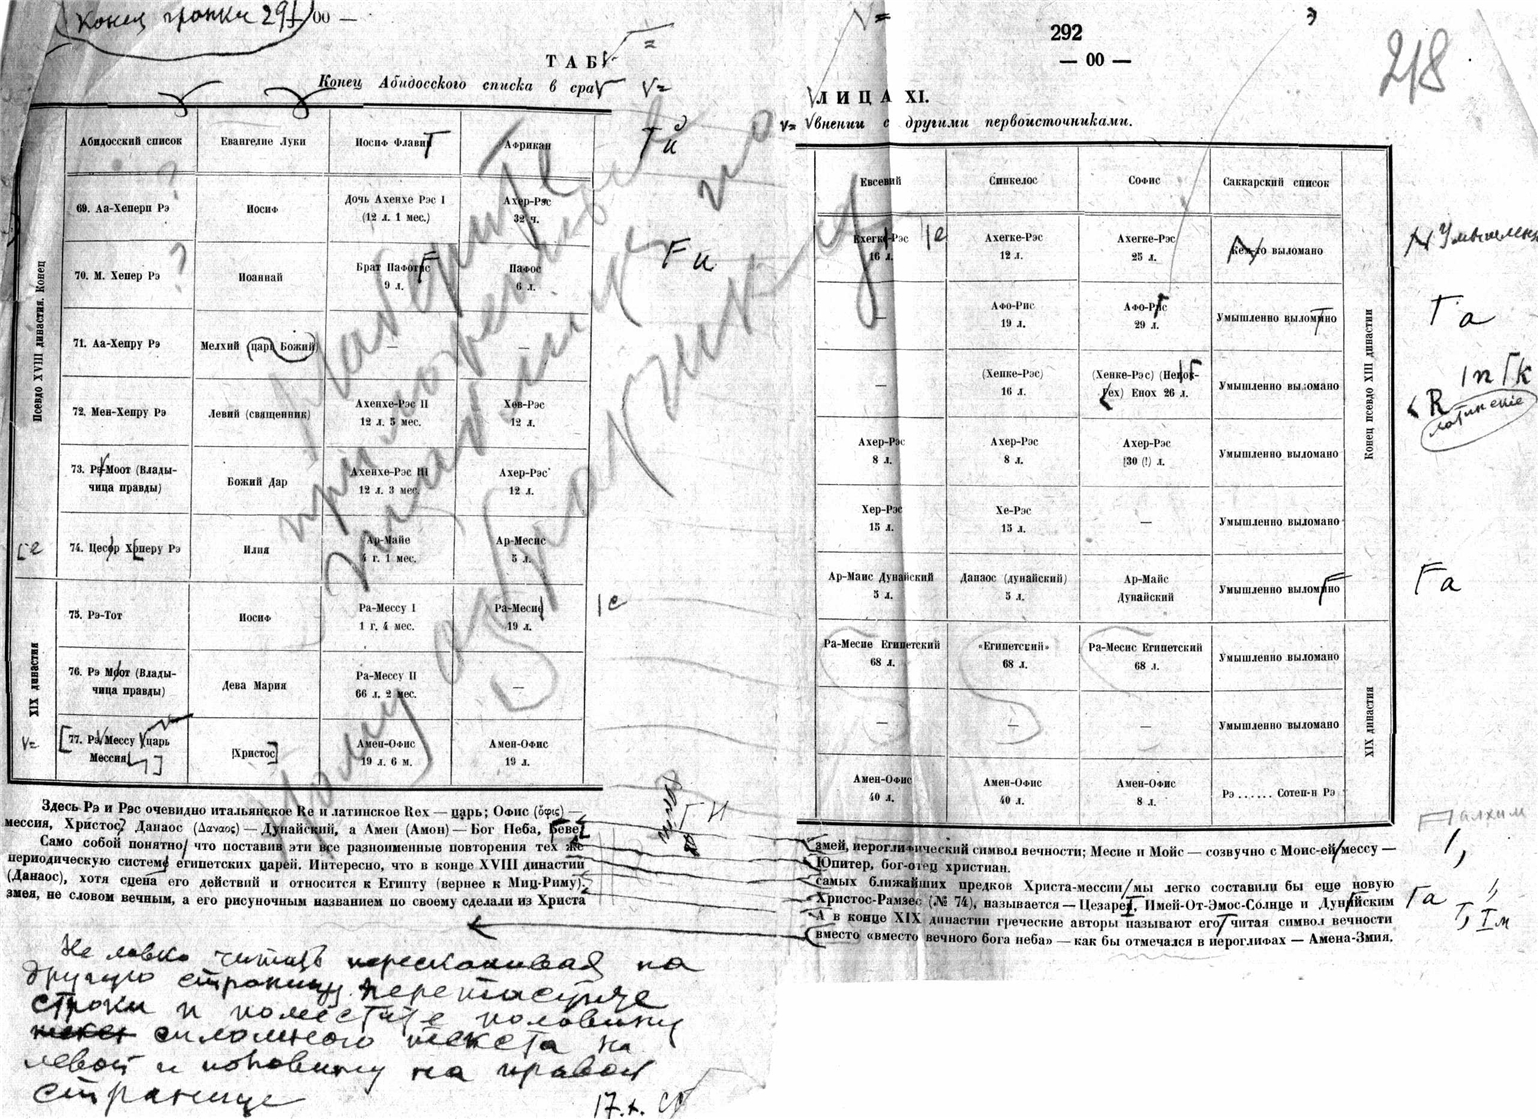 Конец гранки 291
— 00 —
ТАБ
Конец Абидосского списка в сра
Абидосский список Евангелие Луки Иосиф Флавий Африкан
Псевдо XVIII династия. Конец
69. Аа-Хеперп Рэ Иосиф Дочь Ахенхе Рэс I Ахер-Рэс
(12 л. 1 мес.) 32 ч.
70. М. Хепер Рэ Иоаннай Брат Пафотис Пафос
9 л. 6 л.
71. Аа-Хепру Рэ Мелхий (царь Божий) — —
72. Мен-Хепру Рэ Левий (священник) Ахенхе-Рэс II Хев-Рэс
12 л. 5 мес. 12 л.
73. Рэ-Моот (Влады- Божий Дар Ахенхе-Рэс III Ахер-Рэс
чица правды) 12 л. 3 мес. 12 л.
74. Цесор Хоперу Рэ Илия Ар-Майе Ар-Месис
4 г. 1 мес. 5 л.
XIX династия
75. Рэ-Тот Иосиф Ра-Мессу I Ра-Месис
1 г. 4 мес. 19 л.
76. Рэ Моот (Влады- Дева Мария Ра-Мессу II —
чица правды) 66 л. 2 мес.
77. Рэ Мессу царь Христос Амен-Офис Амен-Офис
Мессия 19 л. 6 м. 19 л.
Здесь Рэ и Рэс очевидно итальянское Re и латинское Rex — царь; Офис (ὄφις) —
мессия, Христос? Данаос (Δαναος) — Дунайский, а Амен (Амон) — Бог Неба,
Само собой понятно, что поставив эти все разноименные повторения тех же
периодическую систему египетских царей. Интересно, что в конце XVIII династии
(Данаос), хотя сцена его действий и относится к Египту (вернее к Миц-Риму).
змея, не словом вечным, а его рисуночным названием по своему сделали из Христа
Не ловко читать перескакивая на
другую страницу. Перетасуйте
строки и поместите половину
силомного текста на
левой и половину на правой
странице
17.X.
292
— 00 —
218
ЛИЦА XI.
внении с другими первоисточниками.
Евсевий Синкелос Софис Саккарский список
Конец псевдо XIII династии
Ехегке-Рэс Ахегке-Рэс Ахегке-Рэс Кем-то выломано
16 л. 12 л. 25 л.
— Афо-Рис Афо-Рис Умышленно выломино
19 л. 29 л.
— (Хенке-Рэс) (Хенке-Рэс) Умышленно выломано
16 л. Енох 26 л.
латинские
Ахер-Рэс Ахер-Рэс Ахер-Рэс Умышленно выломано
8 л. 8 л. !30 (!) л.
Хер-Рэс Хе-Рэс — Умышленно выломано
15 л. 15 л.
Ар-Маис Дунайский Данаос (дунайский) Ар-Майс Умышленно выломино
5 л. 5 л. Дунайский
XIX династия
Ра-Месие Египетский «Египетский» Ра-Месис Египетский Умышленно выломано
68 л. 68 л. 68 л.
— — — Умышленно выломано
Амен-Офис Амен-Офис Амен-Офис Рэ ...... Сотеп-н Рэ
40 л. 40 л. 8 л.
змей, иероглифический символ вечности; Месие и Мойс — созвучно с Моис-ей/мессу —
Юпитер, бог-отец христиан.
самых ближайших предков Христа-мессии, мы легко составили бы еще новую
Христос-Рамзес (№ 74), называется — Цезарем, Имей-От-Эмос-Солнце и Дунайским
А в конце XIX династии греческие авторы называют его читая символ вечности
вместо «вместо вечного бога неба» — как бы отмечался в иероглифах — Амена-Змия.